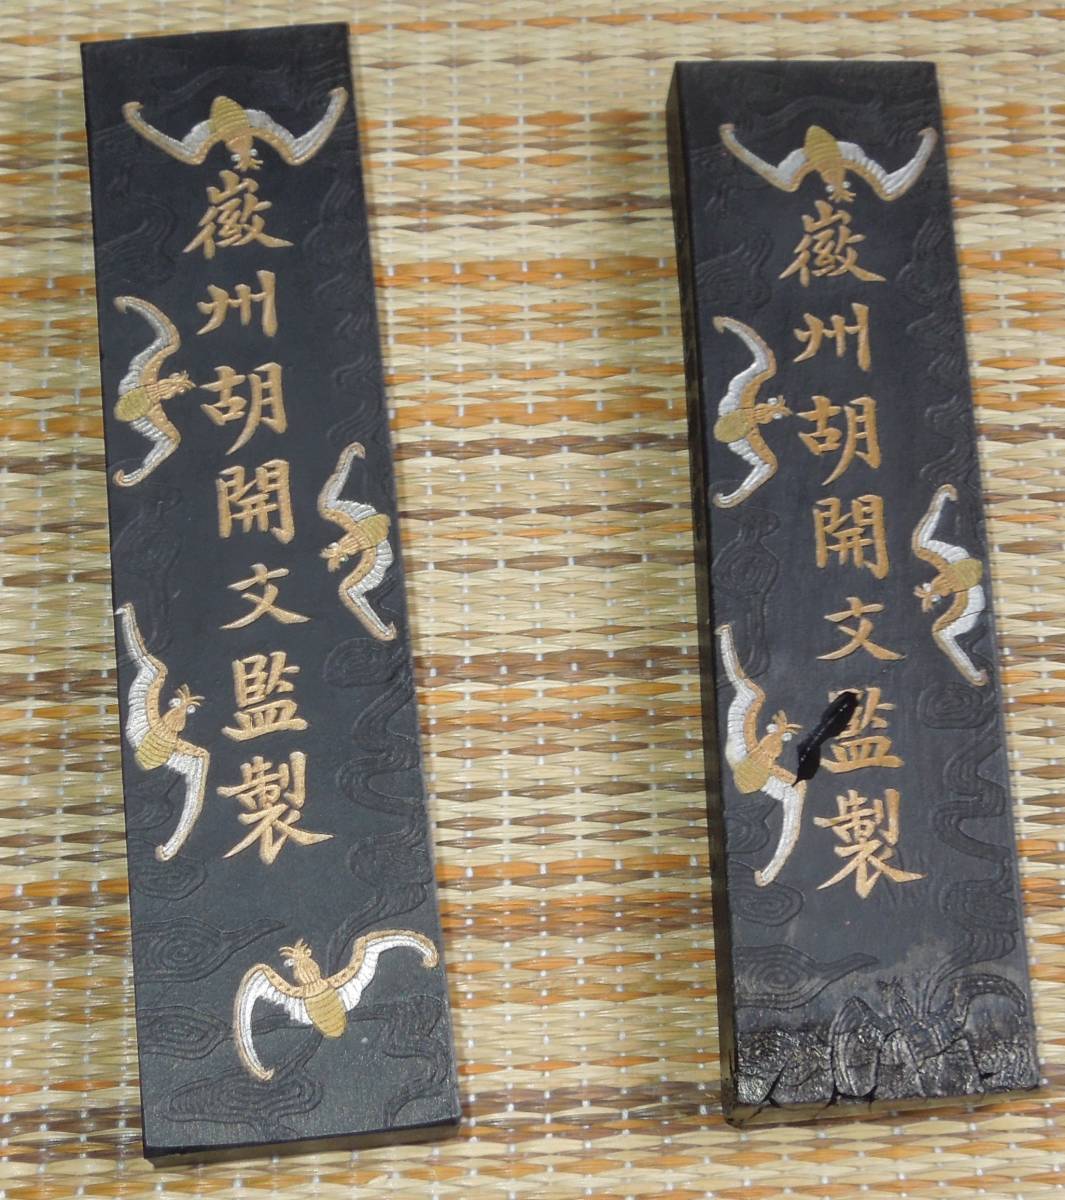 徽州胡開文監製
徽州胡開文監製